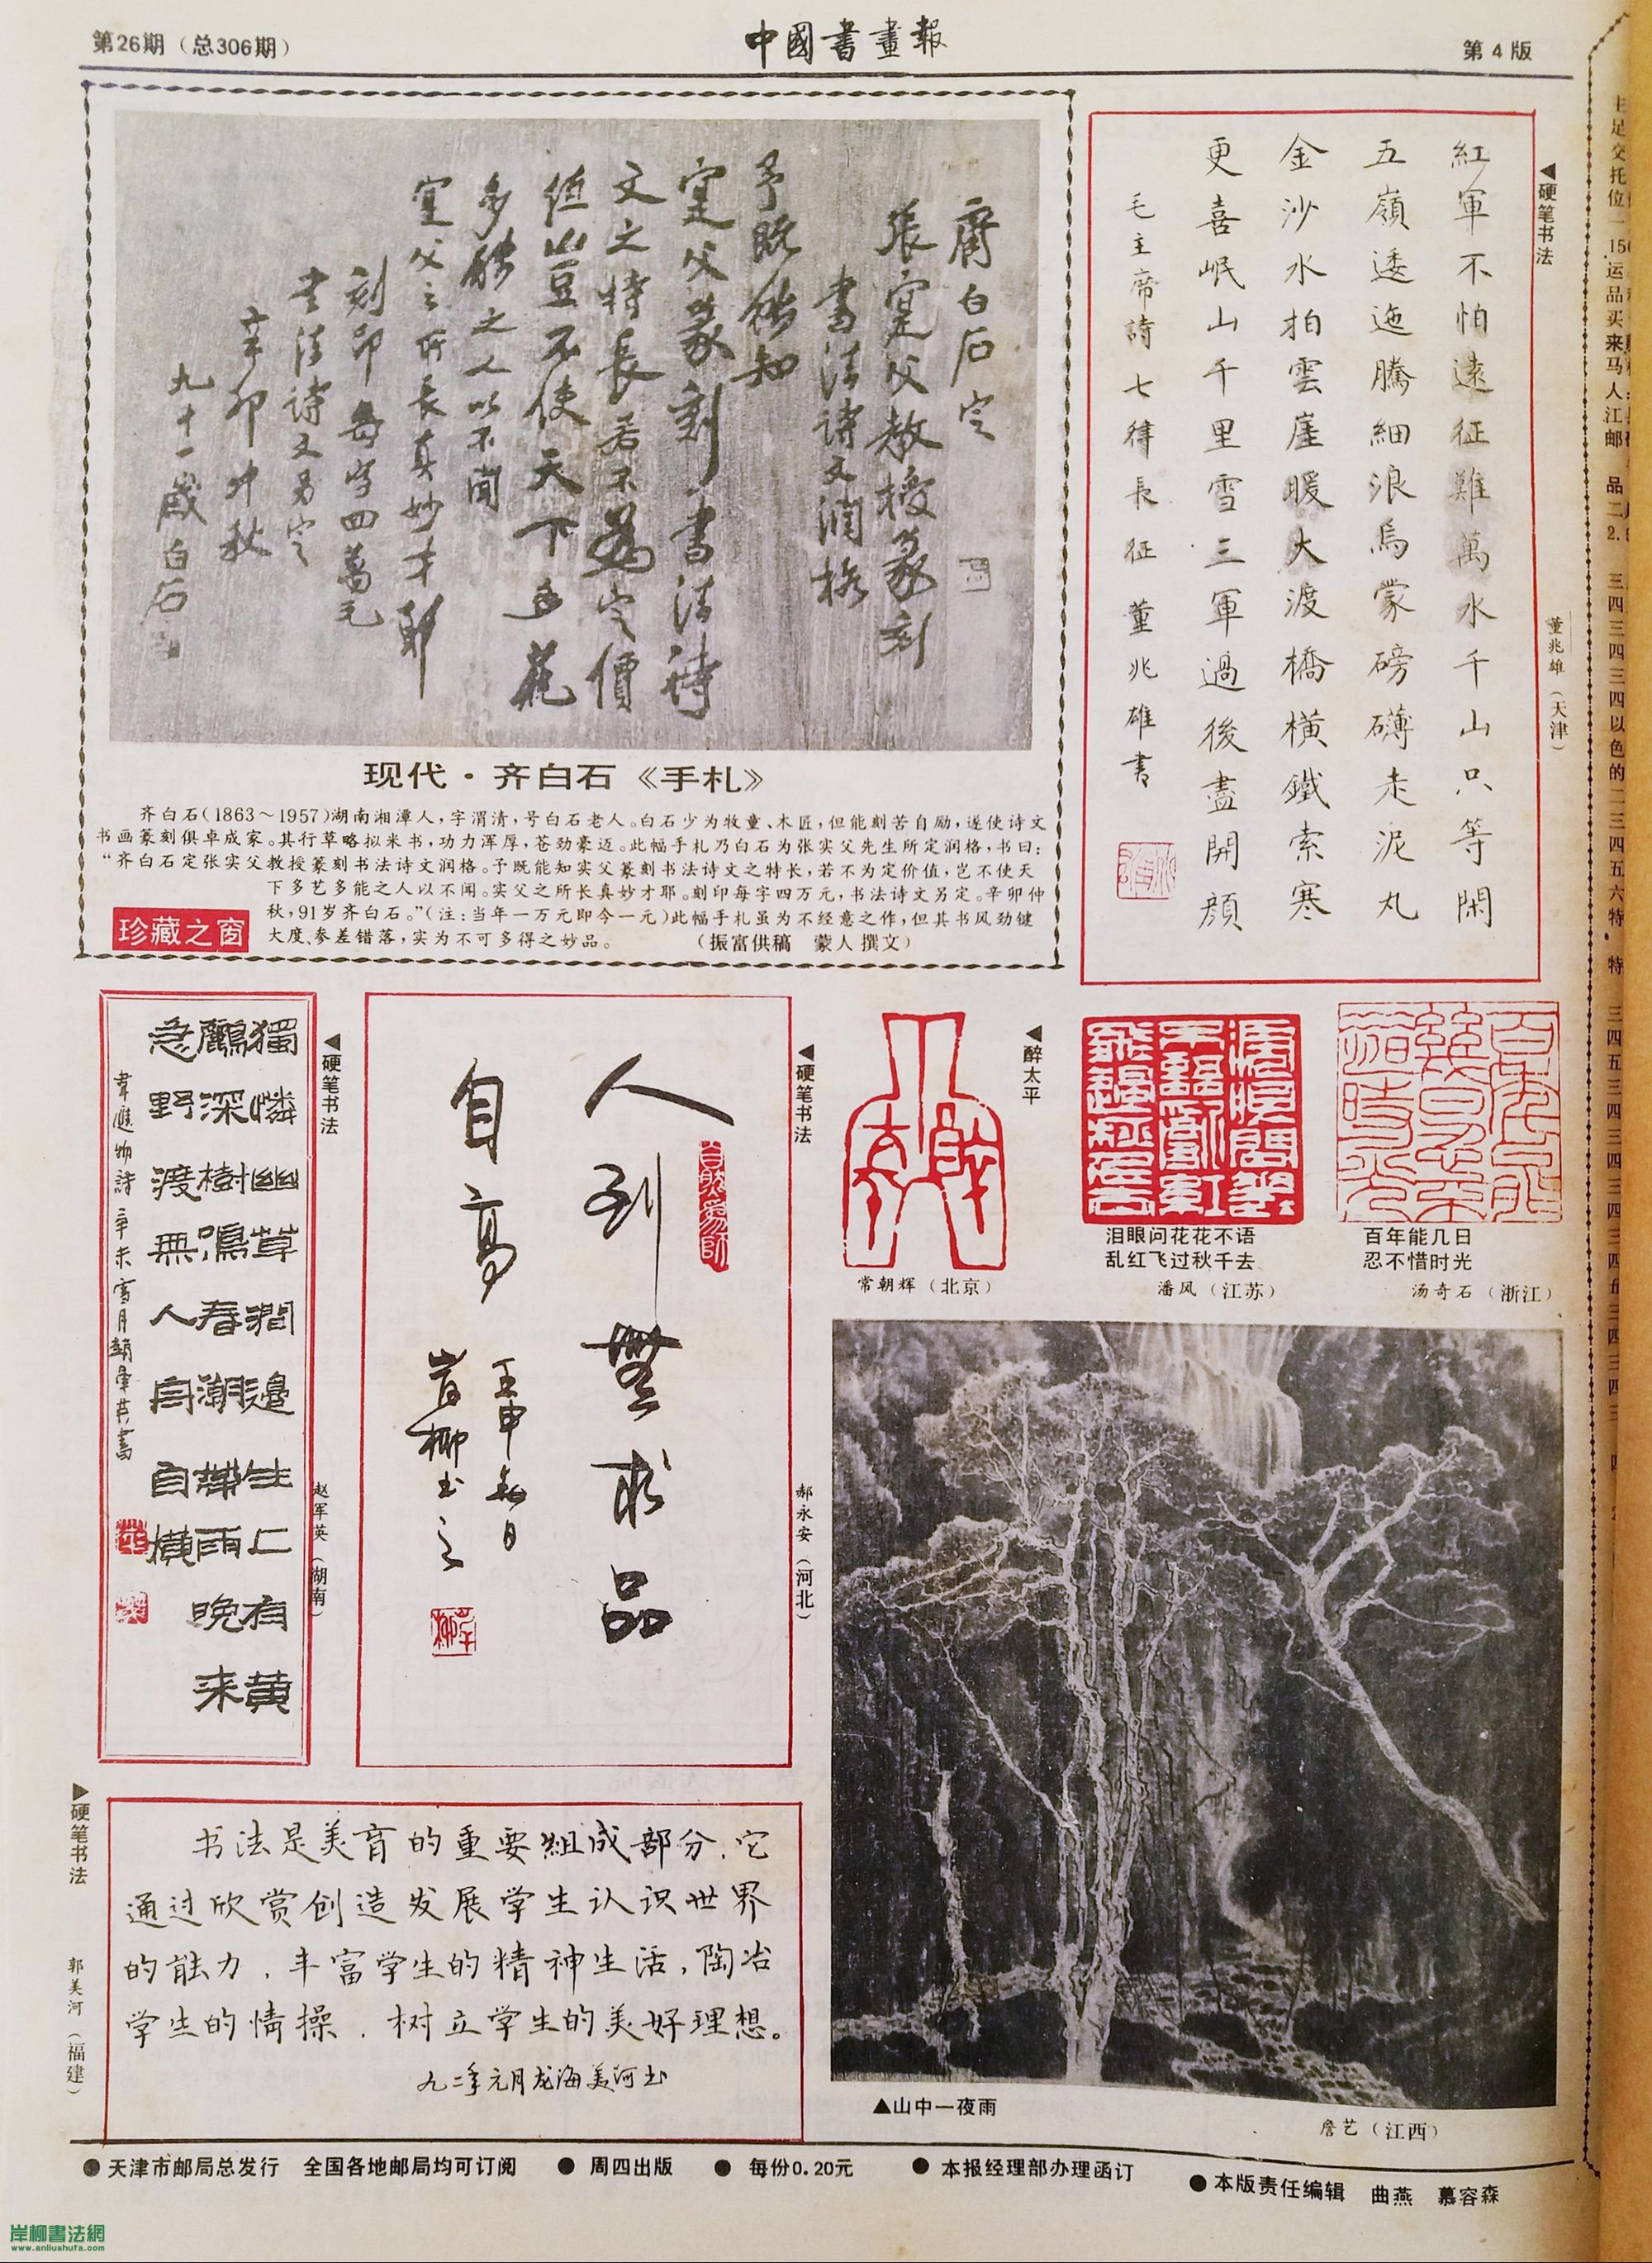 第26期（总306期）
中國書畫報
第4版
齊白石定
張寔父教授篆刻
書法詩文潤格
予既能知
寔父篆刻書法詩
文之特長若不為定價
值豈不使天下多藝
多能之人以不聞
寔父之所長真妙才耶
刻印每字四萬元
書法詩文另定
辛卯中秋
九十一歲白石
现代·齐白石《手札》
齐白石(1863～1957)湖南湘潭人,字渭清,号白石老人。白石少为牧童、木匠,但能刻苦自励,遂使诗文
书画篆刻俱卓成家。其行草略拟米书,功力浑厚,苍劲豪迈。此幅手札乃白石为张实父先生所定润格,书曰:
“齐白石定张实父教授篆刻书法诗文润格。予既能知实父篆刻书法诗文之特长,若不为定价值,岂不使天
下多艺多能之人以不闻。实父之所长真妙才耶。刻印每字四万元,书法诗文另定。辛卯仲
秋,91岁齐白石。”(注:当年一万元即今一元)此幅手札虽为不经意之作,但其书风劲键
大度、参差错落,实为不可多得之妙品。
（振富供稿　蒙人撰文）
珍藏之窗
◀硬笔书法
董兆雄（天津）
紅軍不怕遠征難萬水千山只等閑
五嶺逶迤騰細浪烏蒙磅礴走泥丸
金沙水拍雲崖暖大渡橋橫鐵索寒
更喜岷山千里雪三軍過後盡開顏
毛主席詩七律長征董兆雄書
◀硬笔书法
赵军英（湖南）
獨憐幽草澗邊生上有黃
鸝深樹鳴春潮帶雨晚来
急野渡無人舟自橫
韋應物詩辛未
◀硬笔书法
郝永安（河北）
人到無求品
自高
壬申
岸柳书之
◀醉太平
常朝辉（北京）
泪眼问花花不语
乱红飞过秋千去
潘风（江苏）
百年能几日
忍不惜时光
汤奇石（浙江）
▶硬笔书法
郭美河（福建）
书法是美育的重要组成部分,它
通过欣赏创造发展学生认识世界
的能力,丰富学生的精神生活,陶冶
学生的情操,树立学生的美好理想。
九二年元月龙海美河书
▲山中一夜雨
詹艺（江西）
●天津市邮局总发行　全国各地邮局均可订阅　●周四出版　●每份0.20元　●本报经理部办理函订　●本版责任编辑　曲燕　慕容森
岸柳書法網
www.anliushufa.com